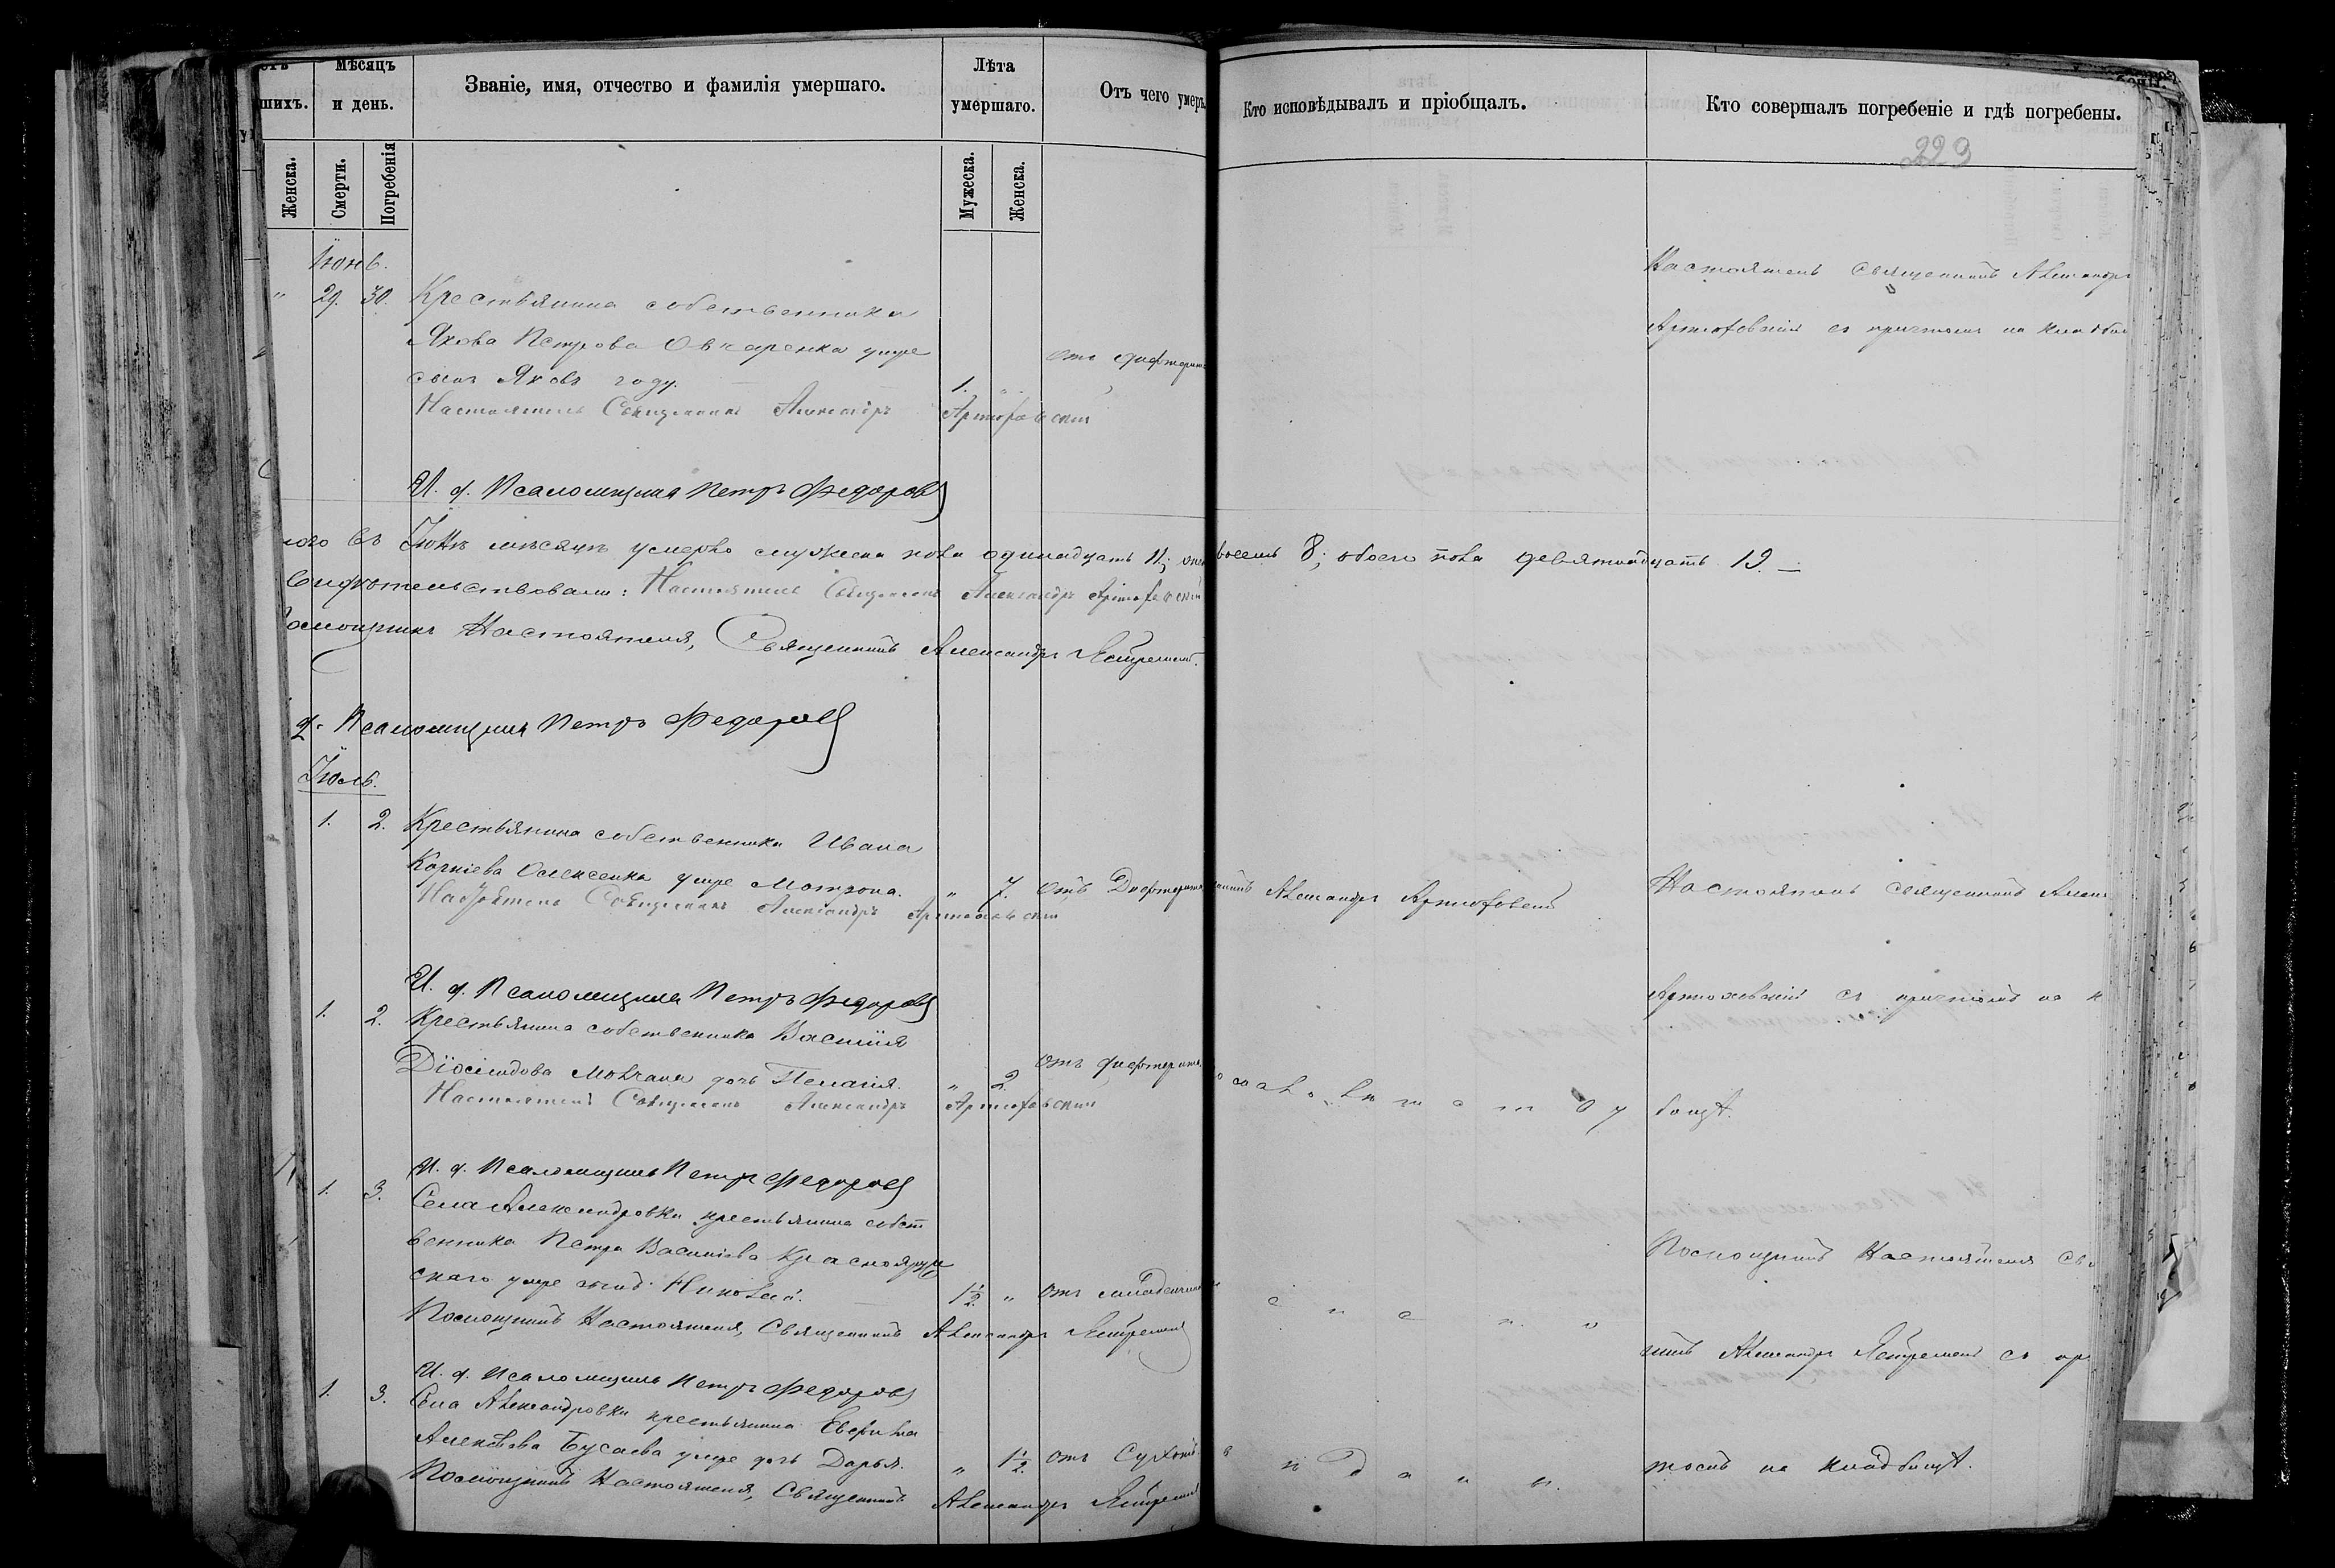 Мѣсяцъ
и день.
Званіе, имя, отчество и фамилія умершаго.
Лѣта
умершаго.
Отъ чего умеръ
Кто исповѣдывалъ и пріобщалъ.
Кто совершалъ погребеніе и гдѣ погребены.
шихъ.
223
Женска.
Смерти.
Погребенія
Мужеска.
Женска.
Іюнь.
" 29. 30. Крестьянина собственника
Якова Петрова Овчаренка умре
сынъ Яковъ году. 1. " отъ дифтерита
Настоятель Священникъ Александръ Артюховскій
И. д. Псаломщика Петръ Федоровъ
Настоятель Священникъ Александръ
Артюховскій съ причтомъ на кладби
Въ Іюнѣ мѣсяцѣ умерло мужеска пола одинадцать 11; восемь 8; обоего пола девятнадцать 19. —
Свидѣтельствовали: Настоятель Священникъ Александръ Артюховскій
Помощникъ Настоятеля, Священникъ Александръ
д. Псаломщика Петръ Федоровъ
Іюль.
1. 2. Крестьянина собственника Ивана
Корніева Олексенка умре Матрона. " 7. отъ Дифтерита
Настоятель Священникъ Александръ Артюховскій
никъ Александръ Артюховскій
Настоятель священникъ Алек
И. д. Псаломщика Петръ Федоровъ
Артюховскій съ причтомъ на к
1. 2. Крестьянина собственника Василія
Діомидова Мовчана дочь Пелагія. " 2. отъ дифтерита
Настоятель Священникъ Александръ Артюховскій
бищѣ.
И. д. Псаломщика Петръ Федоровъ
1. 3. Села Александровки крестьянина собст
венника Петра Василіева Краснояруж
скаго умре сынъ Николай. 1½ " отъ
Помощникъ Настоятеля, Священникъ Александръ
Помощникъ Настоятеля Св
И. д. Псаломщика Петръ Федоровъ
никъ Александръ съ пр
1. 3. Села Александровки крестьянина
Бусаева умре дочь Дарья. " 1½ отъ Сухотъ
Помощникъ Настоятеля, Священникъ Александръ
томъ на кладбищѣ.